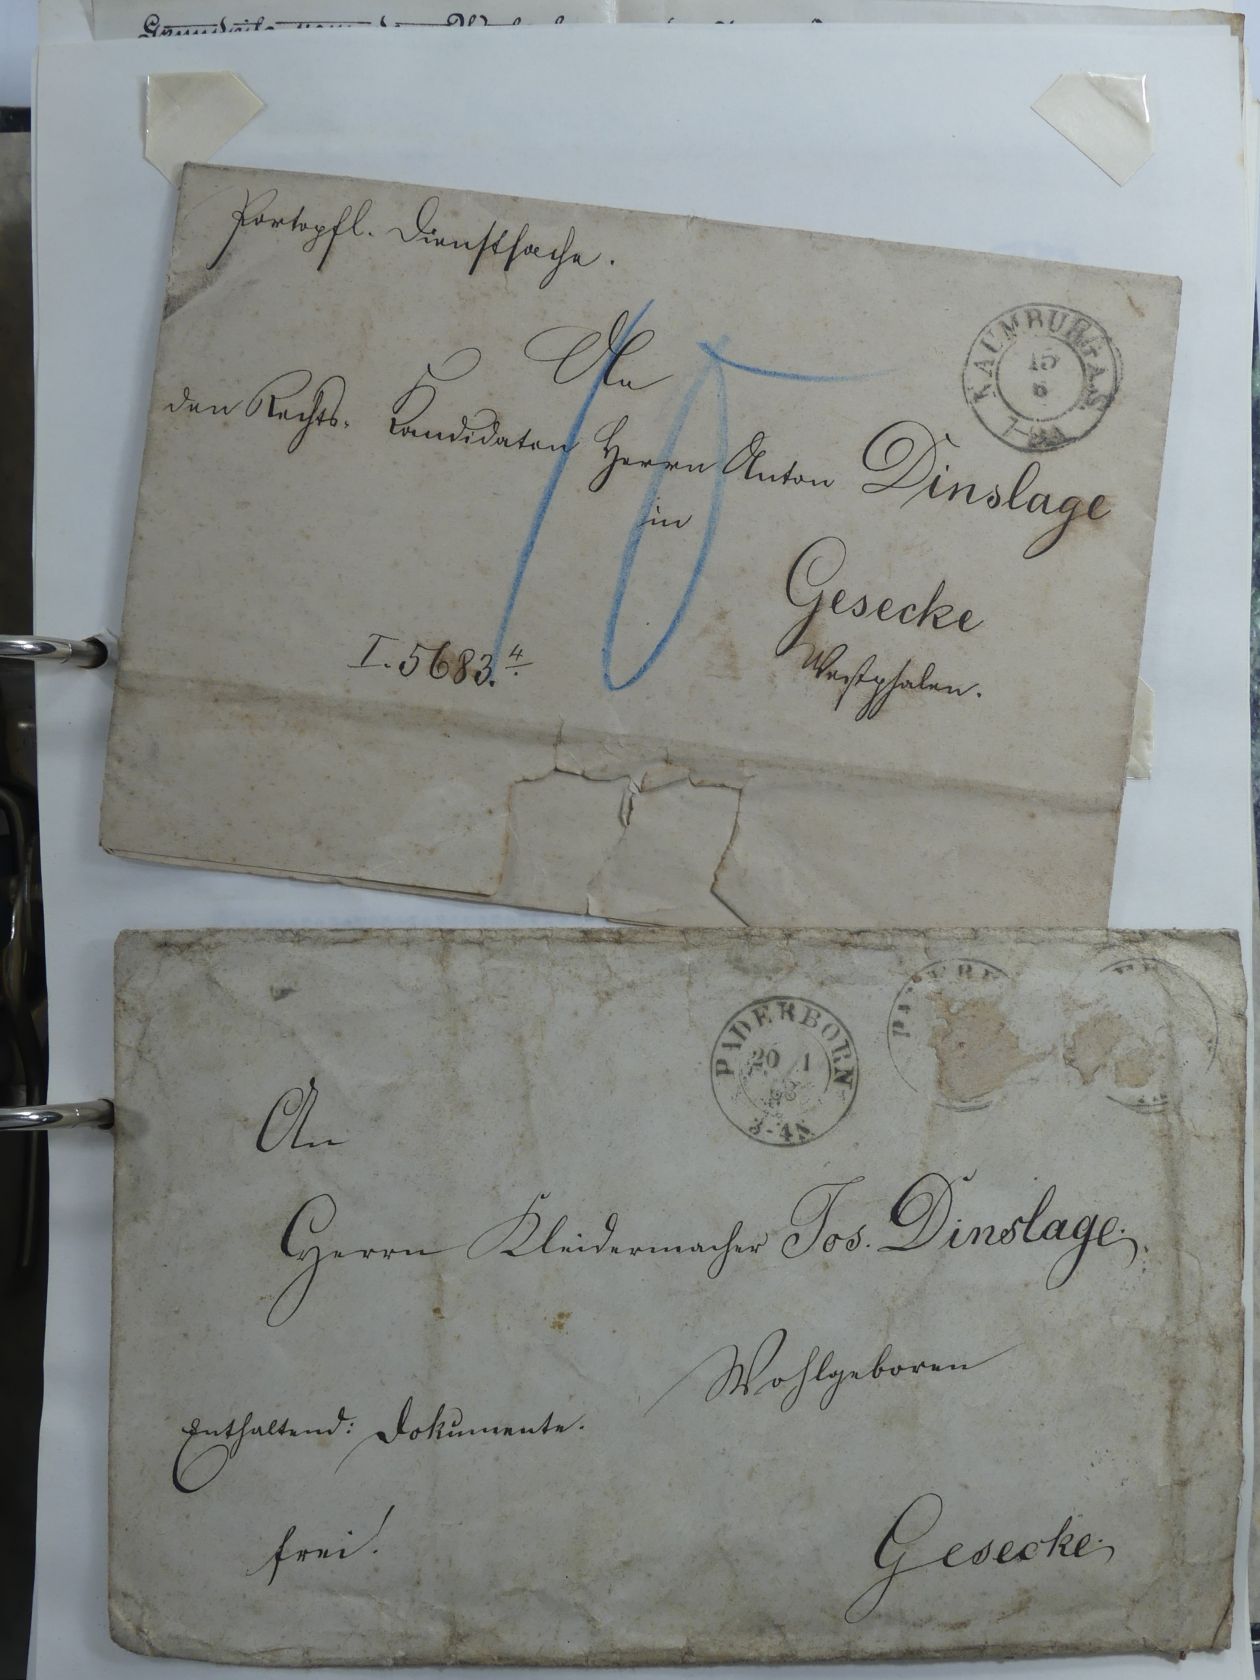 Portopfl. Dienstsache.
An
den Rechts-Kandidaten Herrn Anton Dinslage
in
Gesecke
Westphalen.
I. 5683. 4.
10
NAUMBURG A.S.
15
6
PADERBORN
20 1
3-4N
An
Herrn Kleidermacher Jos. Dinslage.
Wohlgeboren
Enthaltend: Dokumente.
frei!
Gesecke.